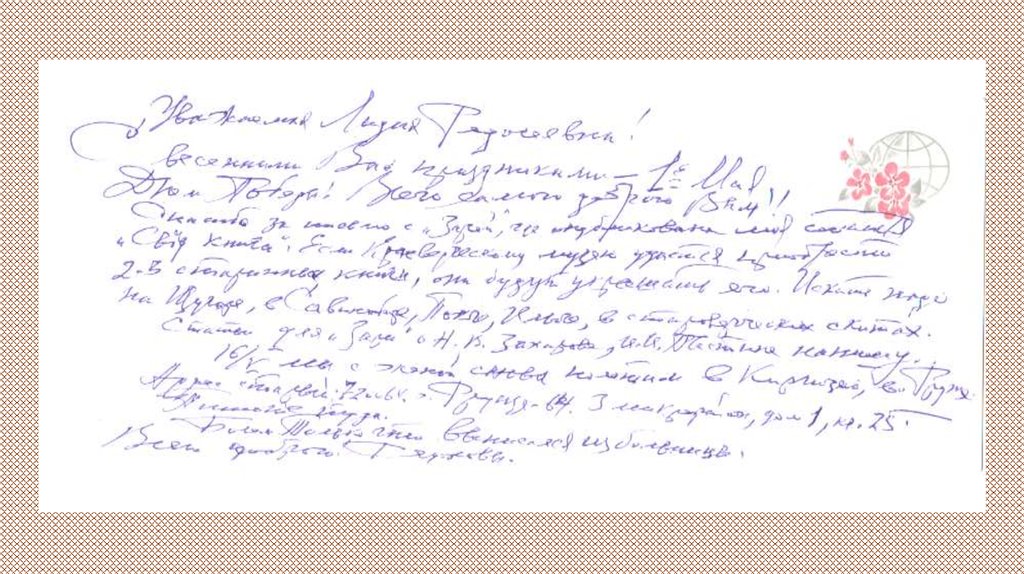 Уважаемая Лидия Федосеевна!
С весенними Вас праздниками – 1е Мая,
Днём Победы! Всего самого доброго Вам!!
Спасибо за письмо с „Зарёй", где опубликована моя статья
„ Книга". Если Краеведческому музею удастся приобрести
2-3 старинных книги, они будут украшать его. Искать надо
на Щугоре, в Савиноборе, Подчерье, Илыче, в старообрядческих скитах.
Статьи для „Зари" о Н. В. Захарове, И.М. напишу.
16/V мы с женой снова полетим в Киргизию, в г. Фрунзе.
Адрес старый: г. Фрунзе-64. 3 микрорайон, дом 1, кв. 25.
туда.
Только что выписался из больницы.
Всего доброго.